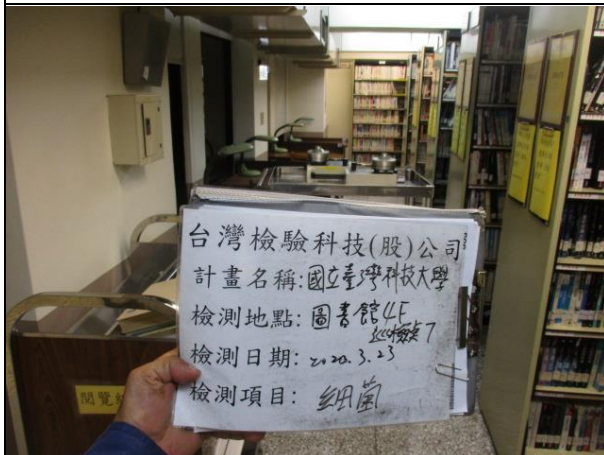 台灣檢驗科技(股)公司
計畫名稱:國立臺灣科技大學
檢測地點:圖書館4F
巡檢點7
檢測日期:2020.3.23
檢測項目:細菌
閱覽